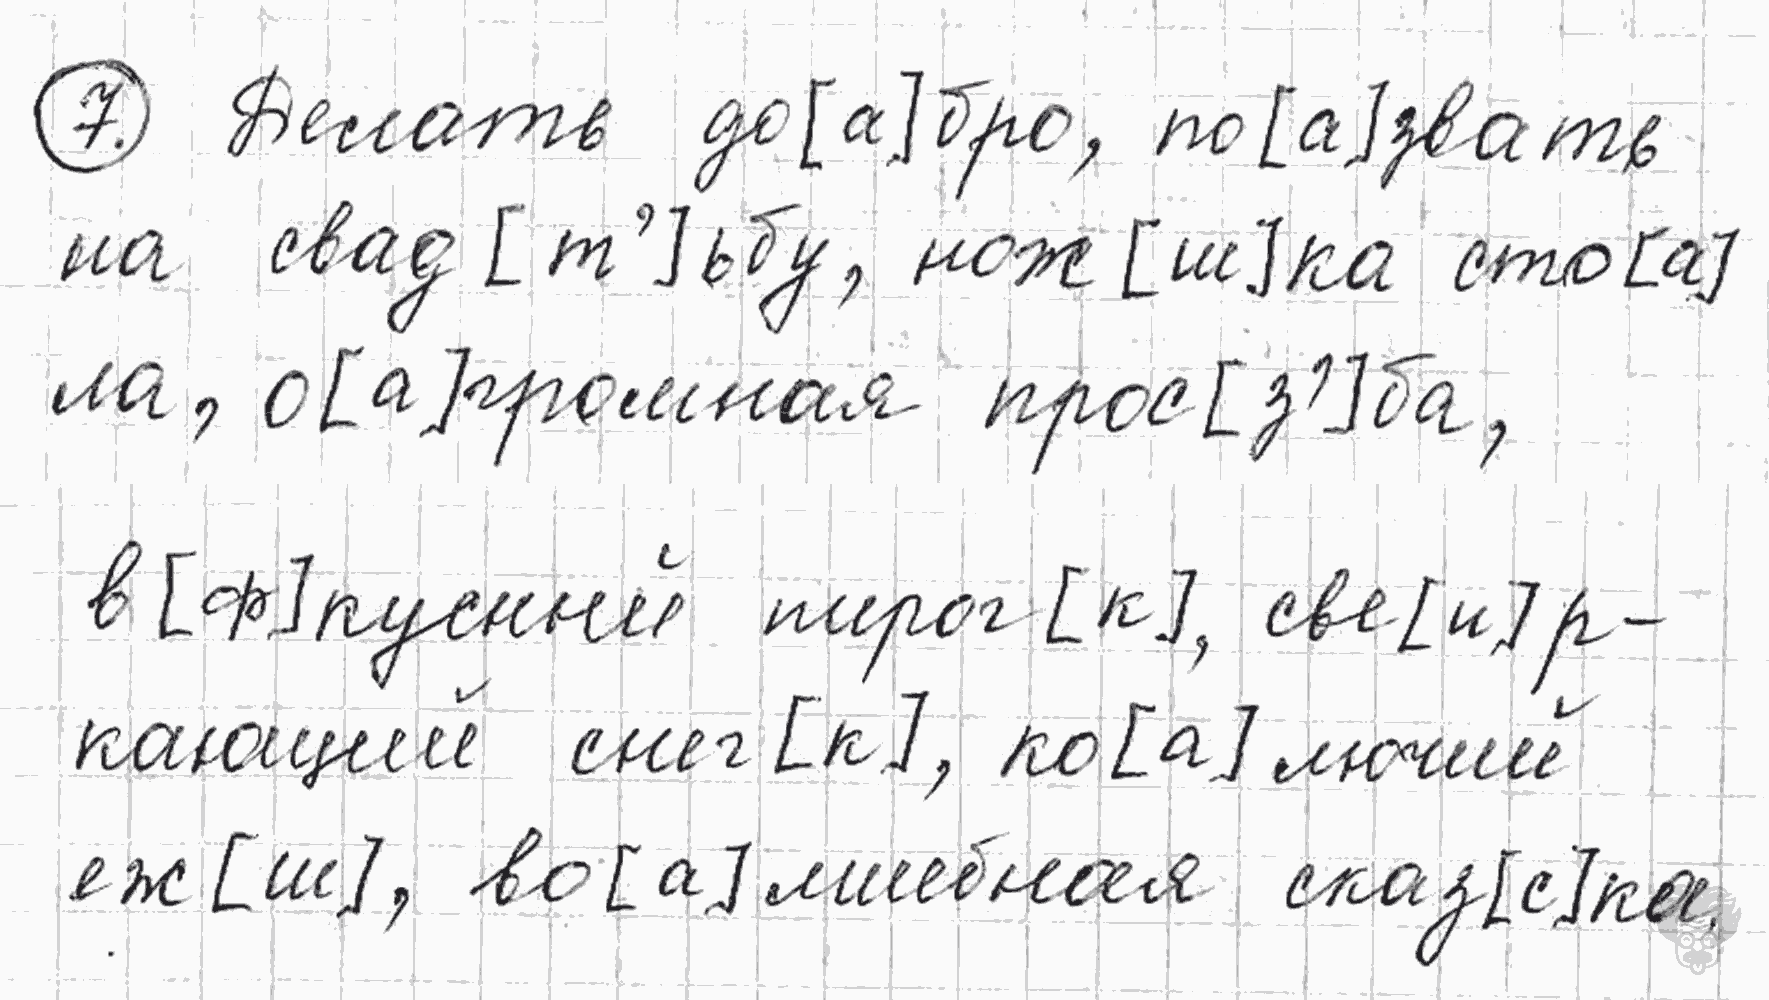 7. Делать до[а]бро, по[а]звать
на свад[т’]ьбу, нож[ш]ка сто[а]
ла, о[а]громная прос[з’]ба,
в[ф]кусный пирог[к], све[и]р-
кающий снег[к], ко[а]лючий
еж[ш], во[а]лшебная сказ[с]ка.